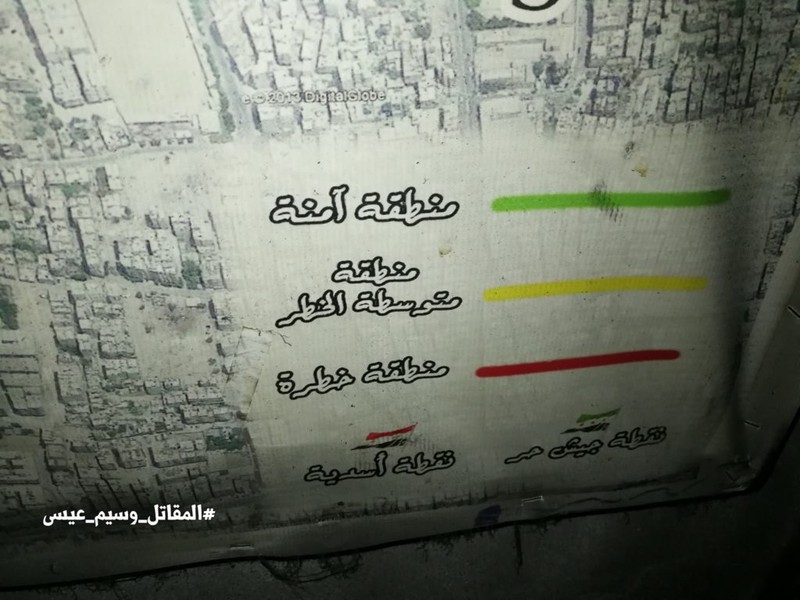 e © 2013 DigitalGlobe
منطقة آمنة
منطقة
متوسطة الخطر
منطقة خطرة
نقطة جيش حر
نقطة أسدية
#المقاتل_وسيم_عيسى